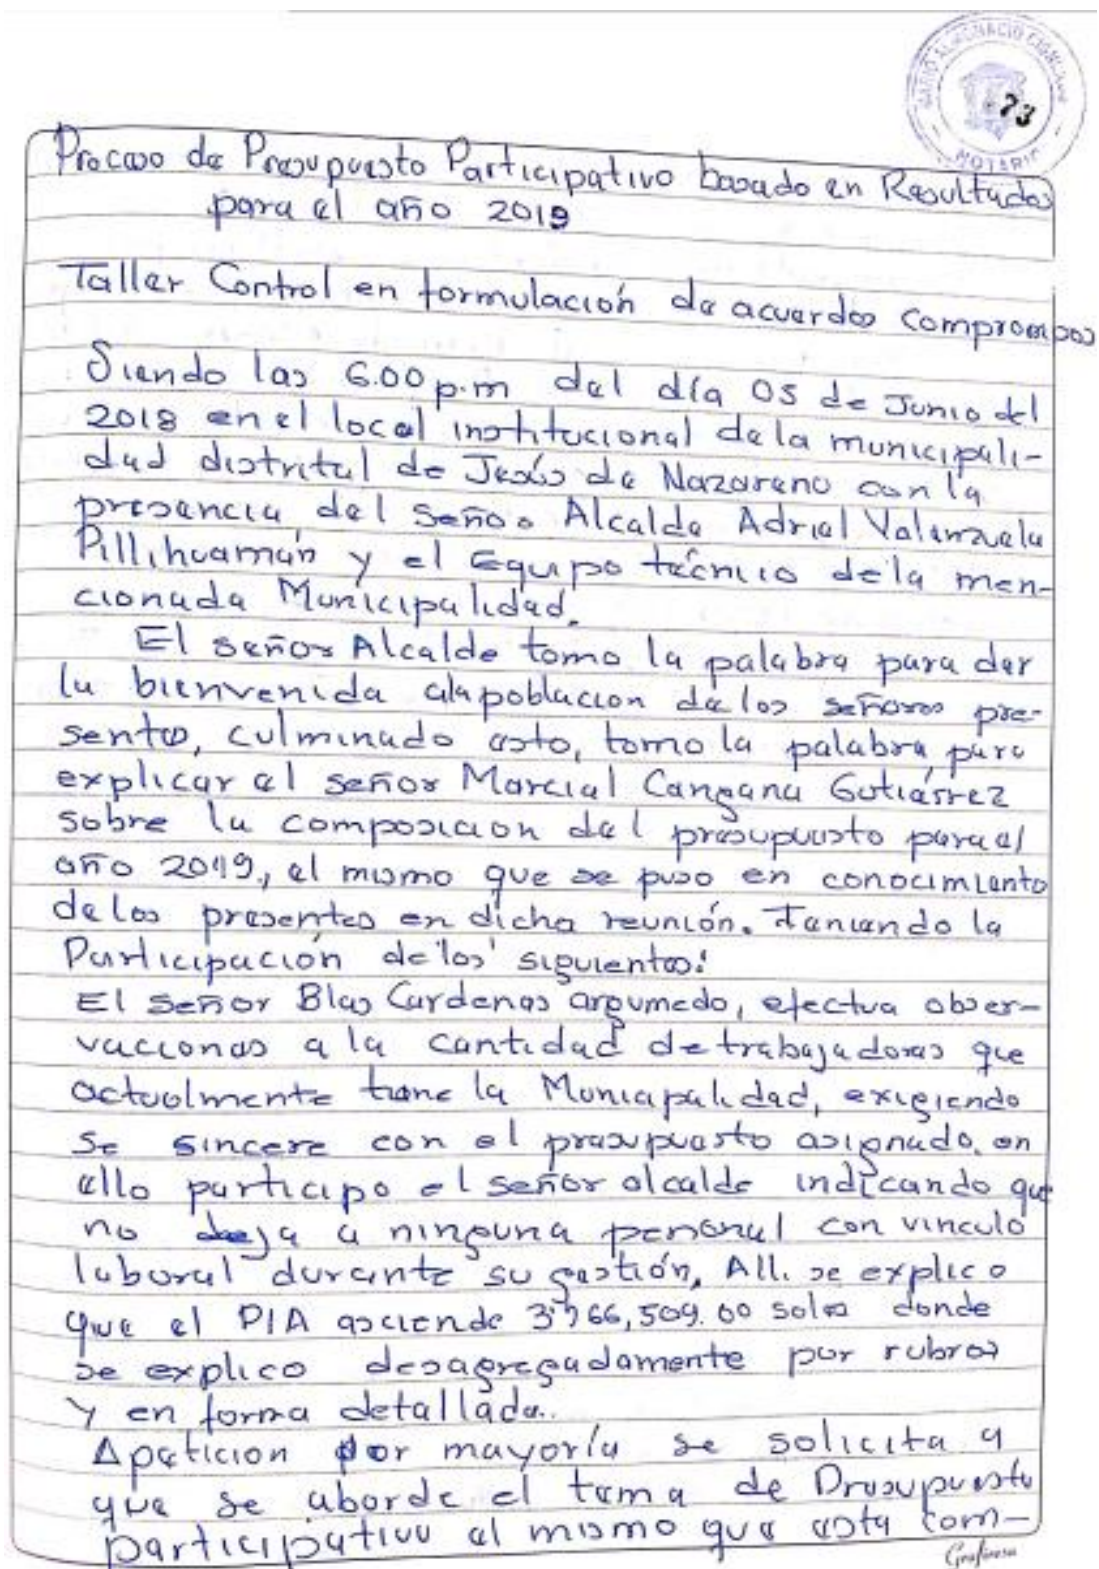 73
NOTARIO
Proceso de Presupuesto Participativo basado en Resultados
para el año 2019
Taller Control en formulación de acuerdos compromisos
Siendo las 6.00 p.m del día 05 de Junio del
2018 en el local institucional de la municipali-
dad distrital de Jesús de Nazareno con la
presencia del Señor Alcalde Adrial Valenzuela
Pillihuamán y el Equipo técnico de la men-
cionada Municipalidad.
El señor Alcalde tomo la palabra para dar
la bienvenida a la poblacion de los señores pre-
sentes, culminado esto, tomo la palabra para
explicar el señor Marcial Cangana Gutiérrez
sobre la composicion del presupuesto para el
año 2019, el mismo que se puso en conocimiento
de los presentes en dicha reunión. Teniendo la
Participación de los siguientes:
El Señor Blas Cardenas argumedo, efectua obser-
vaciones a la cantidad de trabajadores que
actualmente tiene la Municipalidad, exigiendo
se sincere con el presupuesto asignado. en
ello participo el señor alcalde indicando que
no deja a ninguna personal con vinculo
laboral durante su gestión, Alli se explico
que el PIA asciende 3'966,509.00 soles donde
se explico desagregadamente por rubros
y en forma detallada.
A peticion por mayoría se solicita a
que se aborde el tema de Presupuesto
participativo el mismo que esta com-